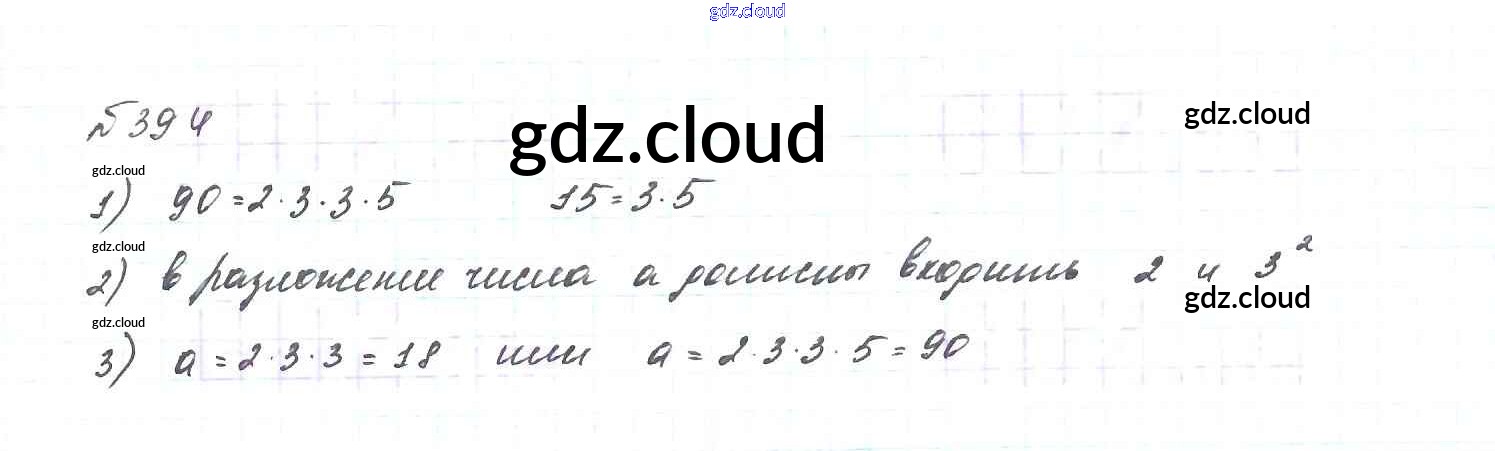 gdz.cloud
№394
gdz.cloud
gdz.cloud
gdz.cloud
1) 90=2·3·3·5 15=3·5
gdz.cloud
2) в разложение числа а должны входить 2 и 3²
gdz.cloud
gdz.cloud
3) а=2·3·3=18 или а=2·3·3·5=90